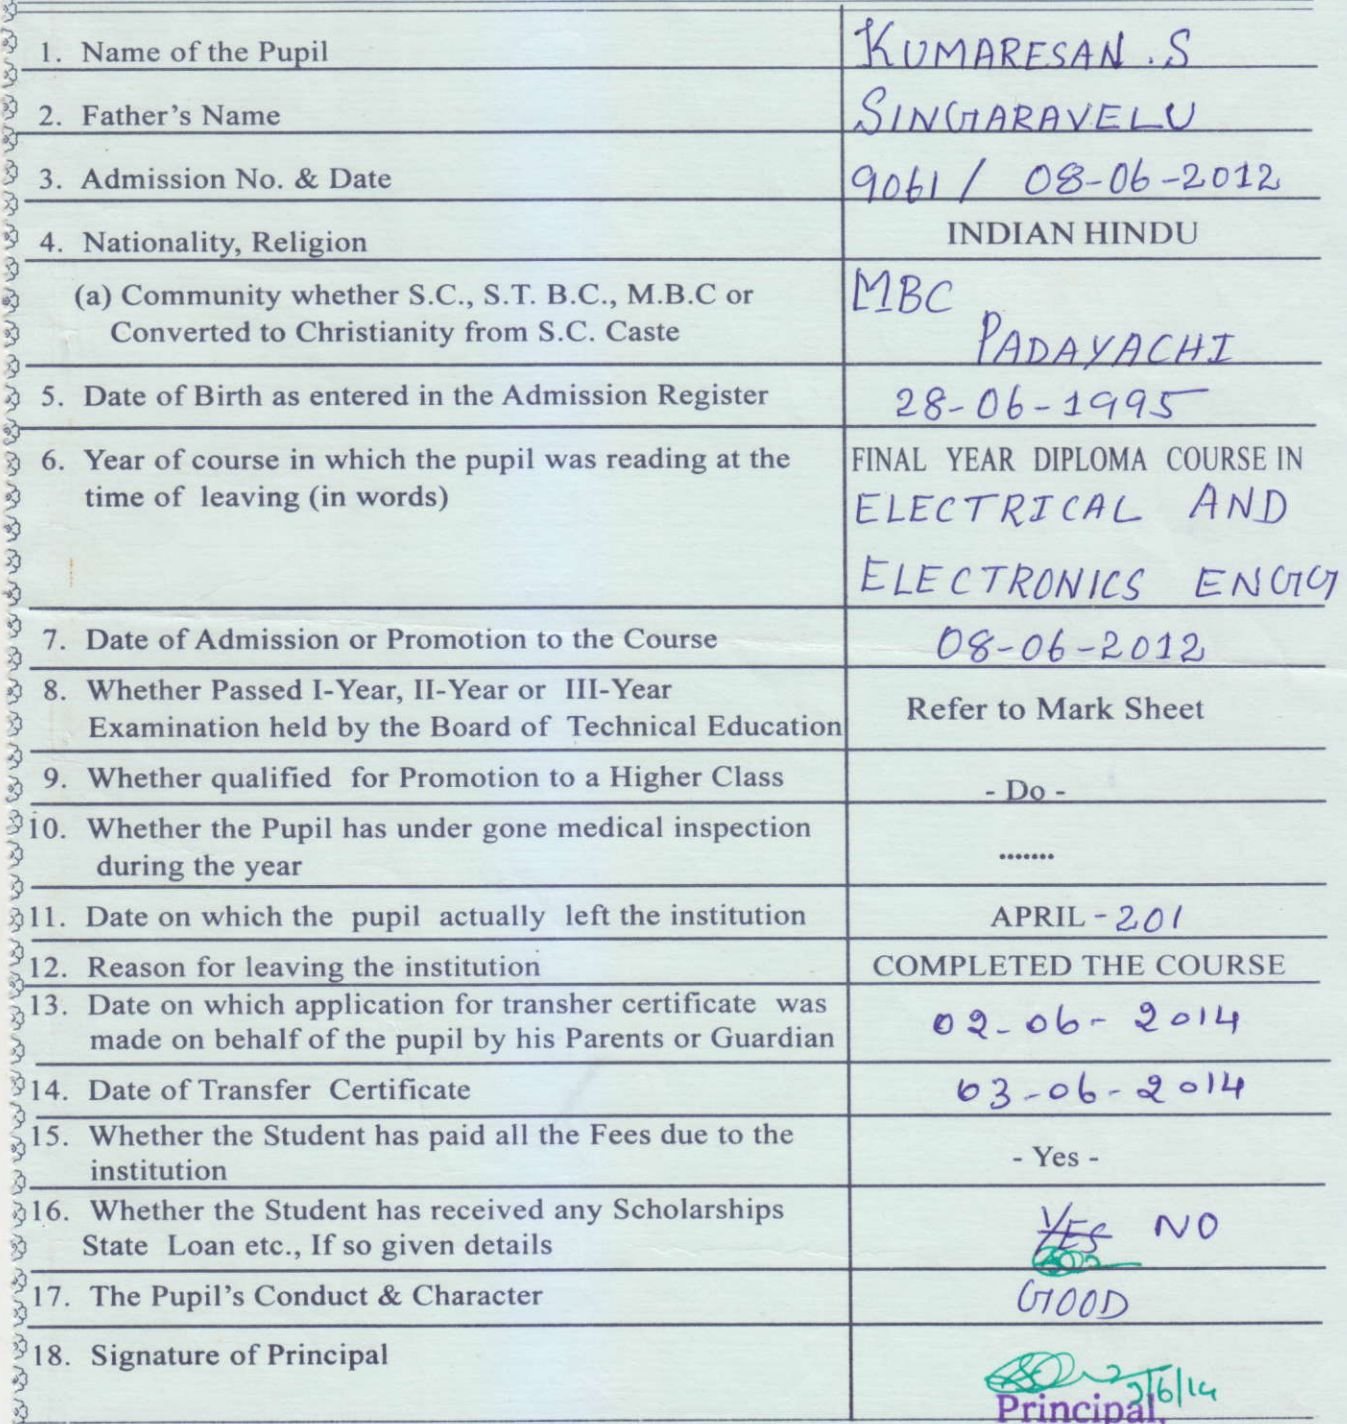 1. Name of the Pupil KUMARESAN . S
2. Father's Name SINGARAVELU
3. Admission No. & Date 9061 / 08-06-2012
4. Nationality, Religion INDIAN HINDU
(a) Community whether S.C., S.T. B.C., M.B.C or MBC
Converted to Christianity from S.C. Caste PADAYACHI
5. Date of Birth as entered in the Admission Register 28-06-1995
6. Year of course in which the pupil was reading at the FINAL YEAR DIPLOMA COURSE IN
time of leaving (in words) ELECTRICAL AND
ELECTRONICS ENGG
7. Date of Admission or Promotion to the Course 08-06-2012
8. Whether Passed I-Year, II-Year or III-Year Refer to Mark Sheet
Examination held by the Board of Technical Education
9. Whether qualified for Promotion to a Higher Class - Do -
10. Whether the Pupil has under gone medical inspection
during the year .......
11. Date on which the pupil actually left the institution APRIL - 201
12. Reason for leaving the institution COMPLETED THE COURSE
13. Date on which application for transher certificate was 02-06-2014
made on behalf of the pupil by his Parents or Guardian
14. Date of Transfer Certificate 03-06-2014
15. Whether the Student has paid all the Fees due to the - Yes -
institution
16. Whether the Student has received any Scholarships YES NO
State Loan etc., If so given details
17. The Pupil's Conduct & Character GOOD
18. Signature of Principal
Principal,